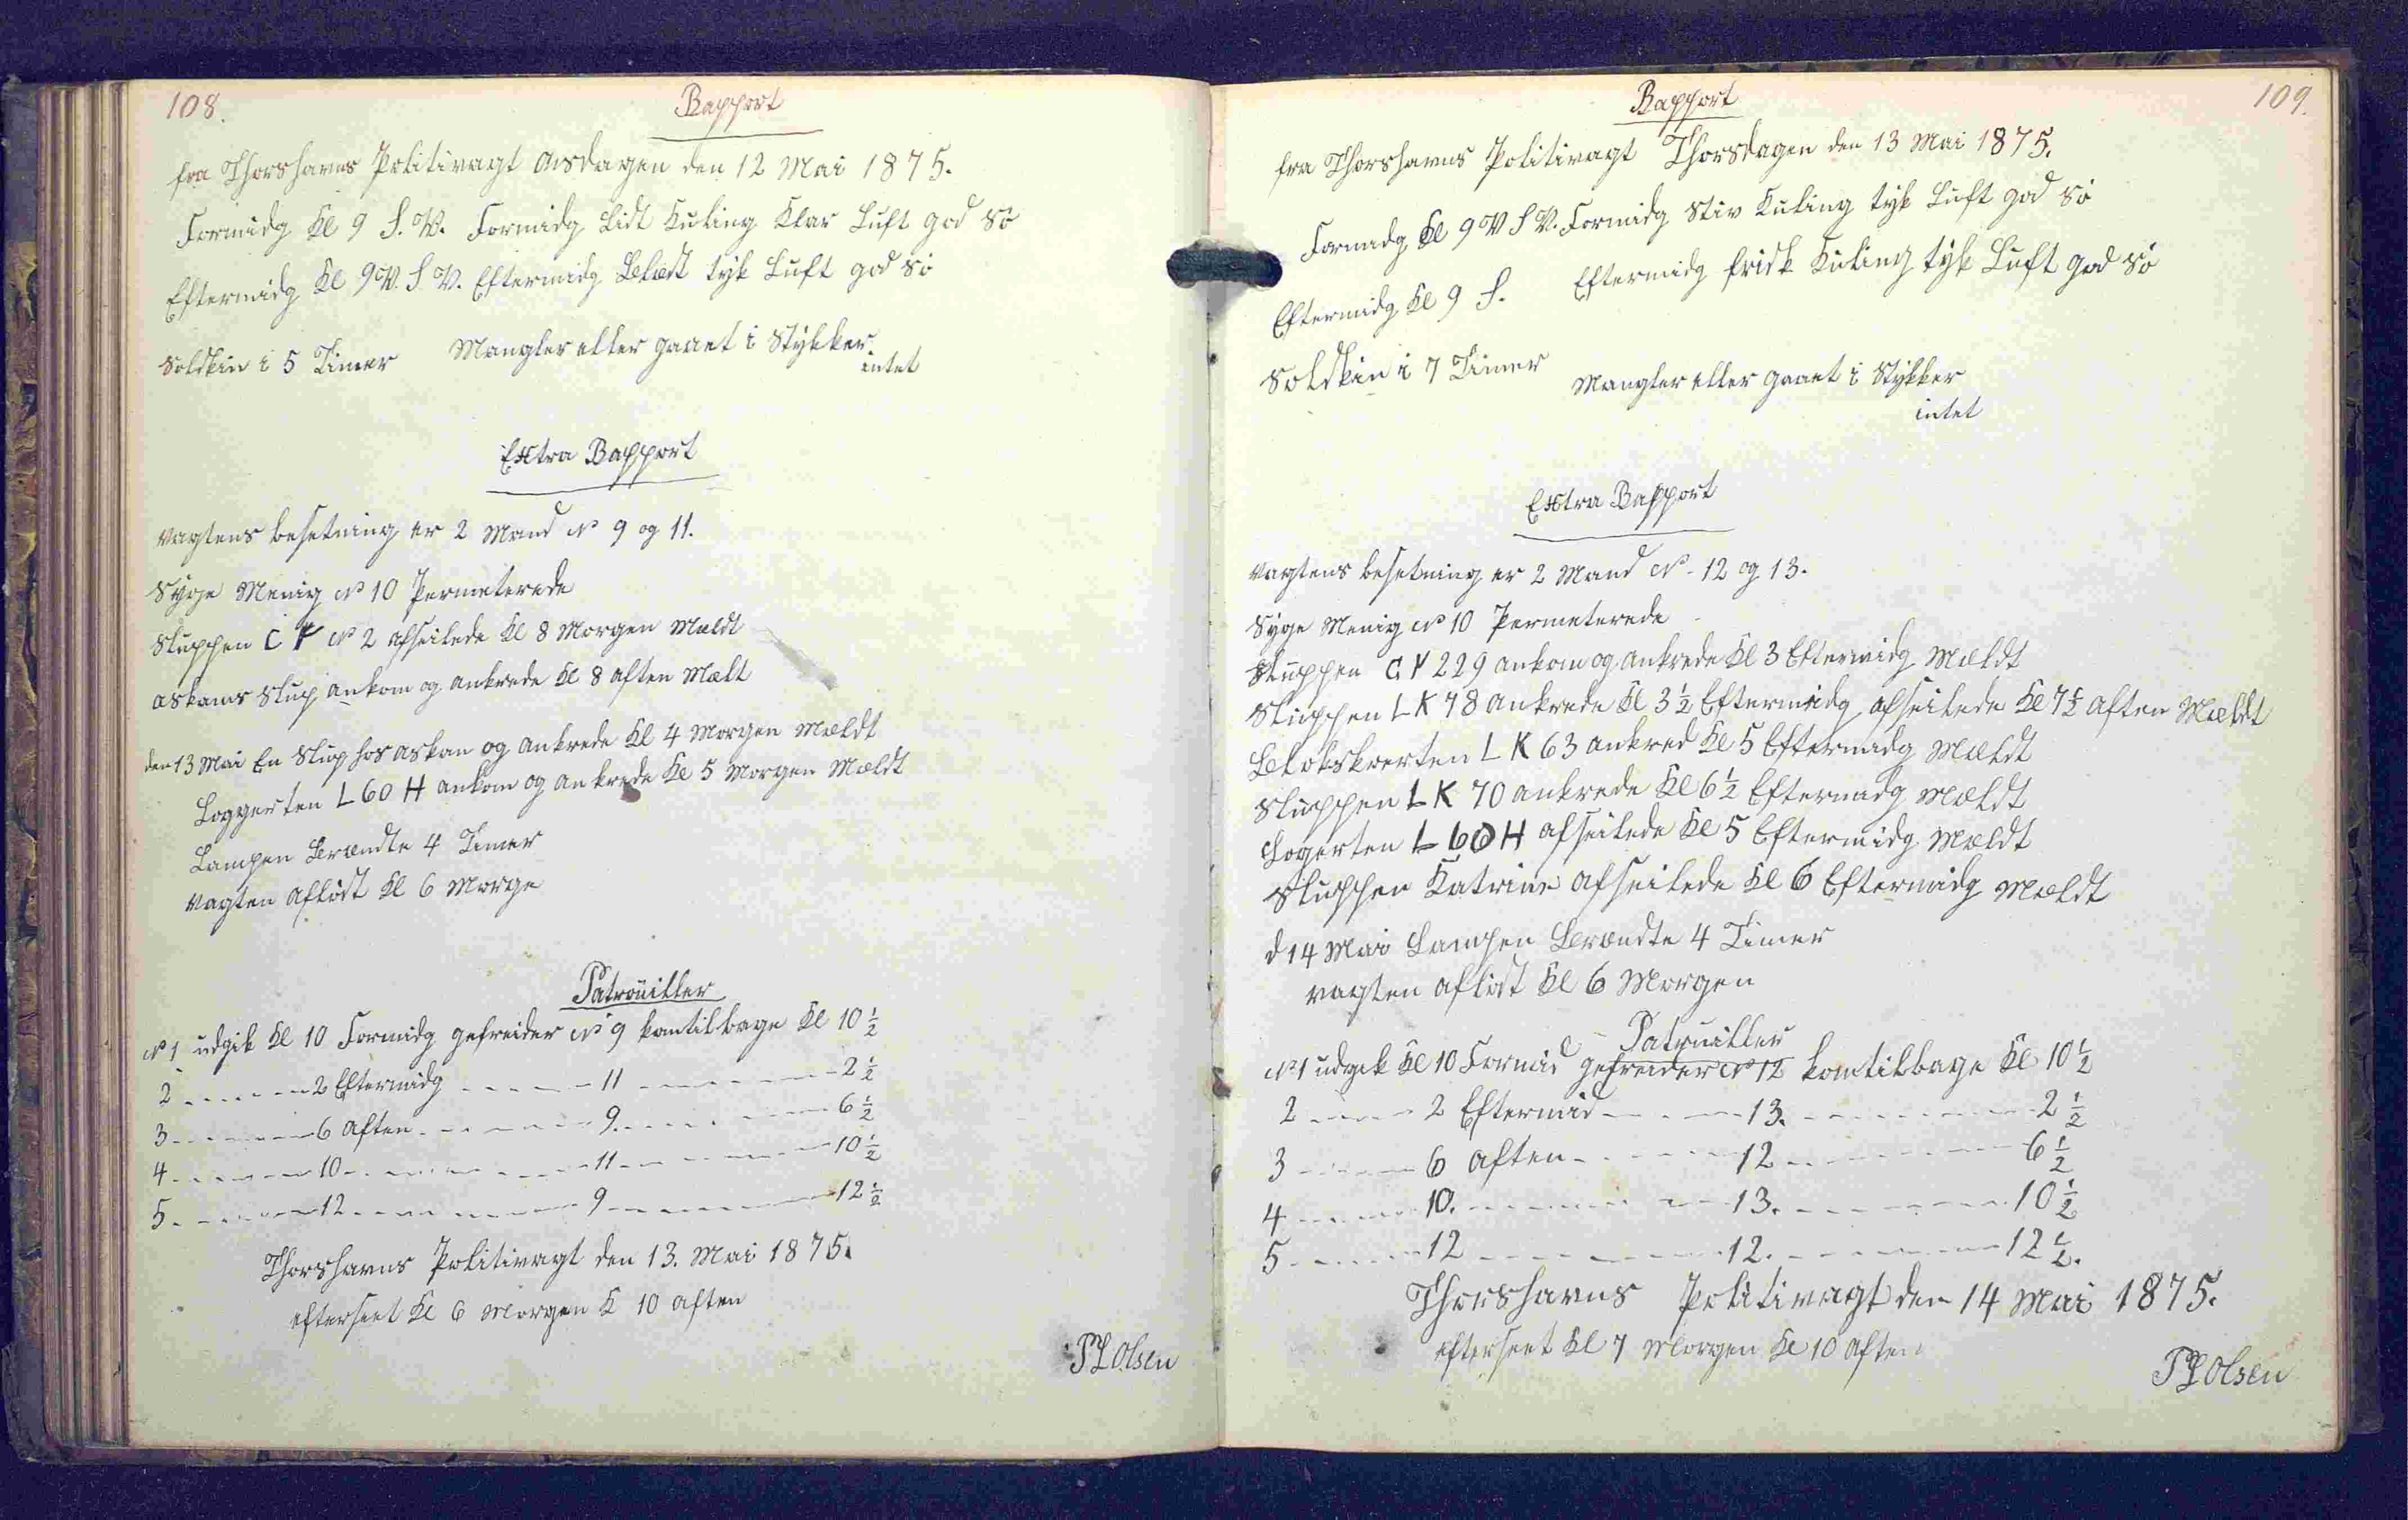 108.
Rapport
fra Thorshavns Politivagt Onsdagen den 12 Mai 1875.
Formidg Kl 9 S. V. Formidg Lidt Kuling Klar Luft god Sö
Eftermidg Kl 9 V. S V. Eftermidg Blæst tyk Luft god Sö
Solskin i 5 Timer Mangler eller gaaet i Stykker.
intet
Extra Rapport
Vagtens besetning er 2 Mand No 9 og 11.
Syge Menig No 10 Permeterede
Sluppen C F No 2 afseilede Kl 8 Morgen Mældt
Askams Slup ankom og ankrede Kl 8 aften Mælt
den 13 Mai En Slup hos Askam og ankrede Kl 4 Morgen Mældt
Loggerten L 60 H ankom og ankrede Kl 5 Morgen Mældt
Lampen Brændte 4 Timer
Vagten aflöst Kl 6 Morge
Patrouiller
No 1 udgik Kl 10 Formidg gefreider No 9 komtilbage Kl 10 1/2
2 - - - - - 2 Eftermidg - - - - - 11 - - - - - 2 1/2
3 - - - - - 6 aften - - - - - 9. - - - - - 6 1/2
4 - - - - - 10 - - - - - 11 - - - - - 10 1/2
5 - - - - - 12 - - - - - 9 - - - - - 12 1/2
Thorshavns Politivagt den 13. Mai 1875.
efterseet Kl 6 Morgen K 10 aften
P L Olsen
109.
Rapport
fra Thorshavns Politivagt Thorsdagen den 13 Mai 1875.
Formidg Kl 9 V S V. Formidg Stiv Kuling tyk Luft god Sö
Eftermidg Kl 9 S. Eftermidg frisk Kuling tyk Luft god Sö
Solskin i 7 Timer Mangler eller gaaet i Stykker
intet
Extra Rapport
Vagtens besetning er 2 Mand No - 12 og 13.
Syge Menig No 10 Permeterede
Sluppen G Y 229 ankom og ankrede Kl 3 Eftermidg Mældt
Sluppen L K 78 ankrede Kl 3 1/2 Eftermidg afseilede Kl 7 1/2 aften Mældt
L K 63 ankred Kl 5 Eftermidg Mældt
Sluppen L K 70 ankrede Kl 6 1/2 Eftermidg Mældt
Logerten L 60 H afseilede Kl 5 Eftermidg Mældt
Sluppen Katrine afseilede Kl 6 Eftermidg Mældt
d 14 Mai Lampen Brændte 4 Timer
vagten aflöst Kl 6 Morgen
Patrouiller
No 1 udgik Kl 10 Formid gefreider No 12 komtilbage Kl 10 1/2
2 - - - - - 2 Eftermid - - - - - 13. - - - - - 2 1/2
3 - - - - - 6 aften - - - - - 12 - - - - - 6 1/2
4 - - - - - 10. - - - - - 13. - - - - - 10 1/2
5 - - - - - 12 - - - - - 12. - - - - - 12 1/2.
Thorshavns Politivagt den 14 Mai 1875.
efterseet Kl 7 Morgen Kl 10 Aften
P L Olsen